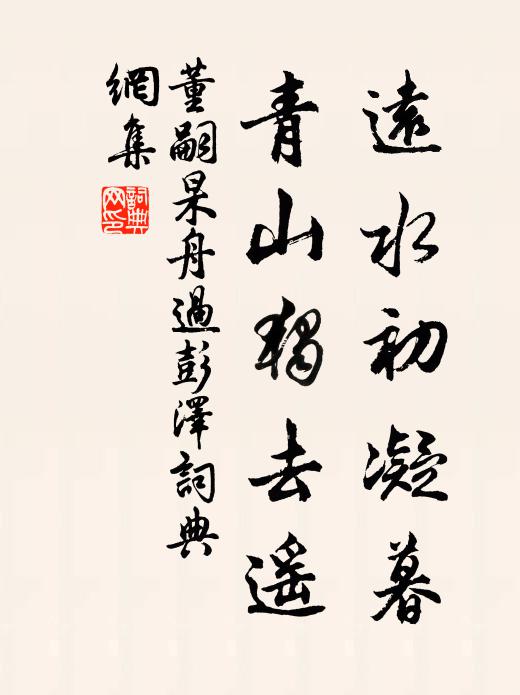 遠水初凝暮
青山獨去遥
董嗣杲舟過彭澤詞典
網集
詞典網印